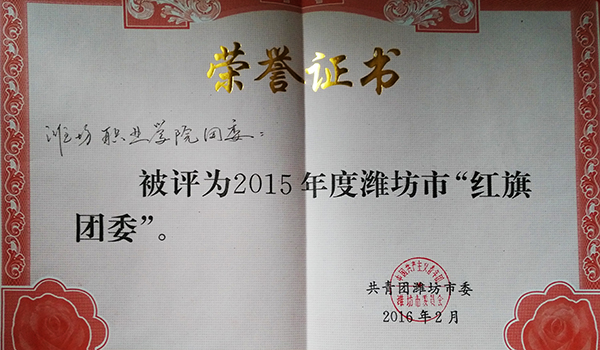 荣誉证书
潍坊职业学院团委：
被评为2015年度潍坊市“红旗
团委”。
共青团潍坊市委
2016年2月
中国共产主义青年团
潍坊市委员会